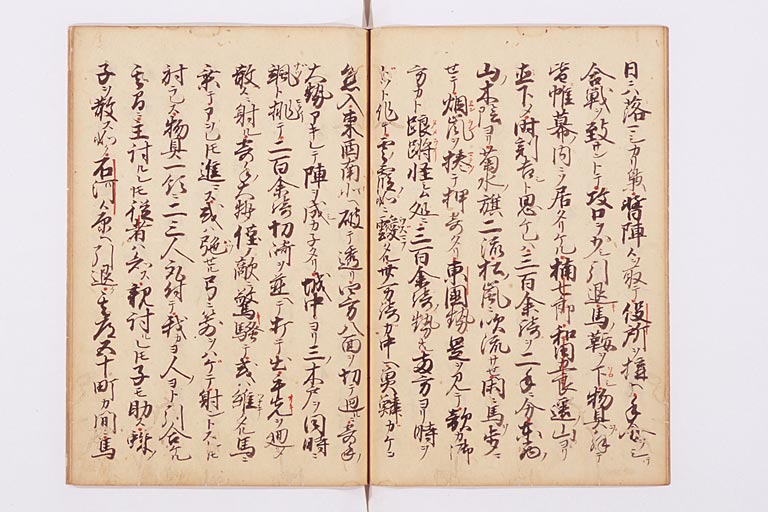 日ハ落マシカリ暫陣ヲ取テ役所ヲ構ヘ手分ヲシテ
合戦ヲ致サントテ攻口ヲ少シ引退馬鞍ヲ下物具ヲ解テ
皆帷幕ノ内ニソ居タリケル楠七郎和田五郎遥山ヨリ
直下ソ時刻吉ト思ケレハ三百余騎ヲ二手ニ分東西ノ
山木陰ヨリ菊水ノ旗二流松嵐ニ吹流サセ閑ニ馬歩
セテ烟嵐ヲ挟テ押寄タリ東国勢是ヲ見テ敵カ御
方カト踉蹡怪ム処ニ三百余騎勢共両方ヨリ時ヲ
ドツト作テ雲霞如ニ靉タル卅万騎カ中ヘ魚鱗カケニ
懸入東西南北ヘ破テ透リ四方八面ヲ切テ廻ニ寄手
大勢アキレテ陣ヲ成カネタリ城中ヨリ三木戸ヲ同時ニ
颯排テ二百余騎切崎ヲ並テ打テ出手先ヲ廻ソ
散々ニ射ル寄手大勢僅ノ敵ニ驚騒テ或ハ維タル馬ニ
乗テアヲレ𪜈進マス或ハ弛セル弓ニ矢ヲハケテ射ントスレ𪜈
射ラレス物具一領ニ二三人取付テ我カヨ人ノヨト引合ケル
其間ニ主討ルレ𪜈従者ハ知ス親討レ𪜈子モ助ス蜘
子ヲ散ス如ク石河原ヘ引退ク其道五十町カ間馬